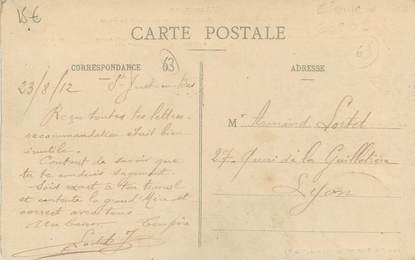 15€
CARTE POSTALE
CORRESPONDANCE
63
ADRESSE
63
23/8/12 St Just-en-Bas
Reçu toutes tes lettres
recommandation était bien
inutile.
Content de savoir que
tu te conduis sagement.
Sois exact à ton travail
et contente la grand'Mère et
correct avec tous
Un baiser Ton père
Mr Armand
27 Quai de la Guillotière
Lyon